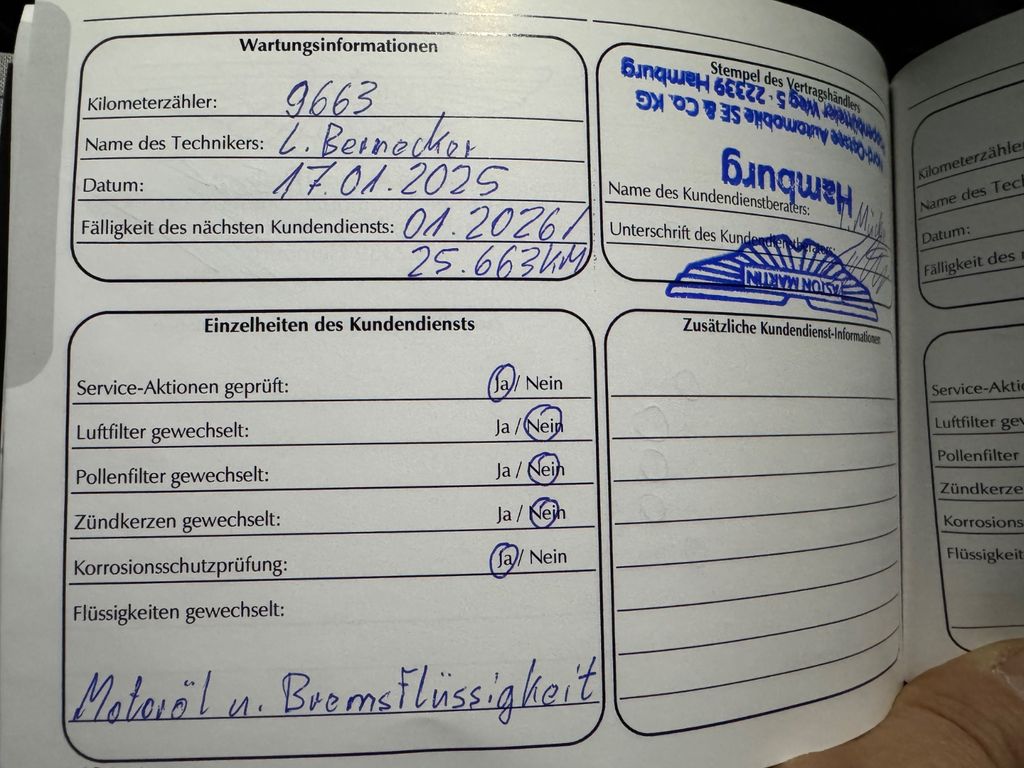 Wartungsinformationen
Kilometerzähler: 9663
Name des Technikers: L. Bernecker
Datum: 17.01.2025
Fälligkeit des nächsten Kundendiensts: 01.2026/
25.663KM
Stempel des Vertragshändlers
Hamburg
Nord-Ostsee Automobile SE & Co. KG
Weg 5 · 22339 Hamburg
Name des Kundendienstberaters:
Unterschrift des Kundendienstberaters:
ASTON MARTIN
Einzelheiten des Kundendiensts
Service-Aktionen geprüft: Ja / Nein
Luftfilter gewechselt: Ja / Nein
Pollenfilter gewechselt: Ja / Nein
Zündkerzen gewechselt: Ja / Nein
Korrosionsschutzprüfung: Ja / Nein
Flüssigkeiten gewechselt:
Motoröl u. Bremsflüssigkeit
Zusätzliche Kundendienst-Informationen
Kilometerzähle
Name des Tec
Datum:
Fälligkeit des
Service-Akti
Luftfilter gew
Pollenfilter
Zündkerze
Korrosions
Flüssigkeit